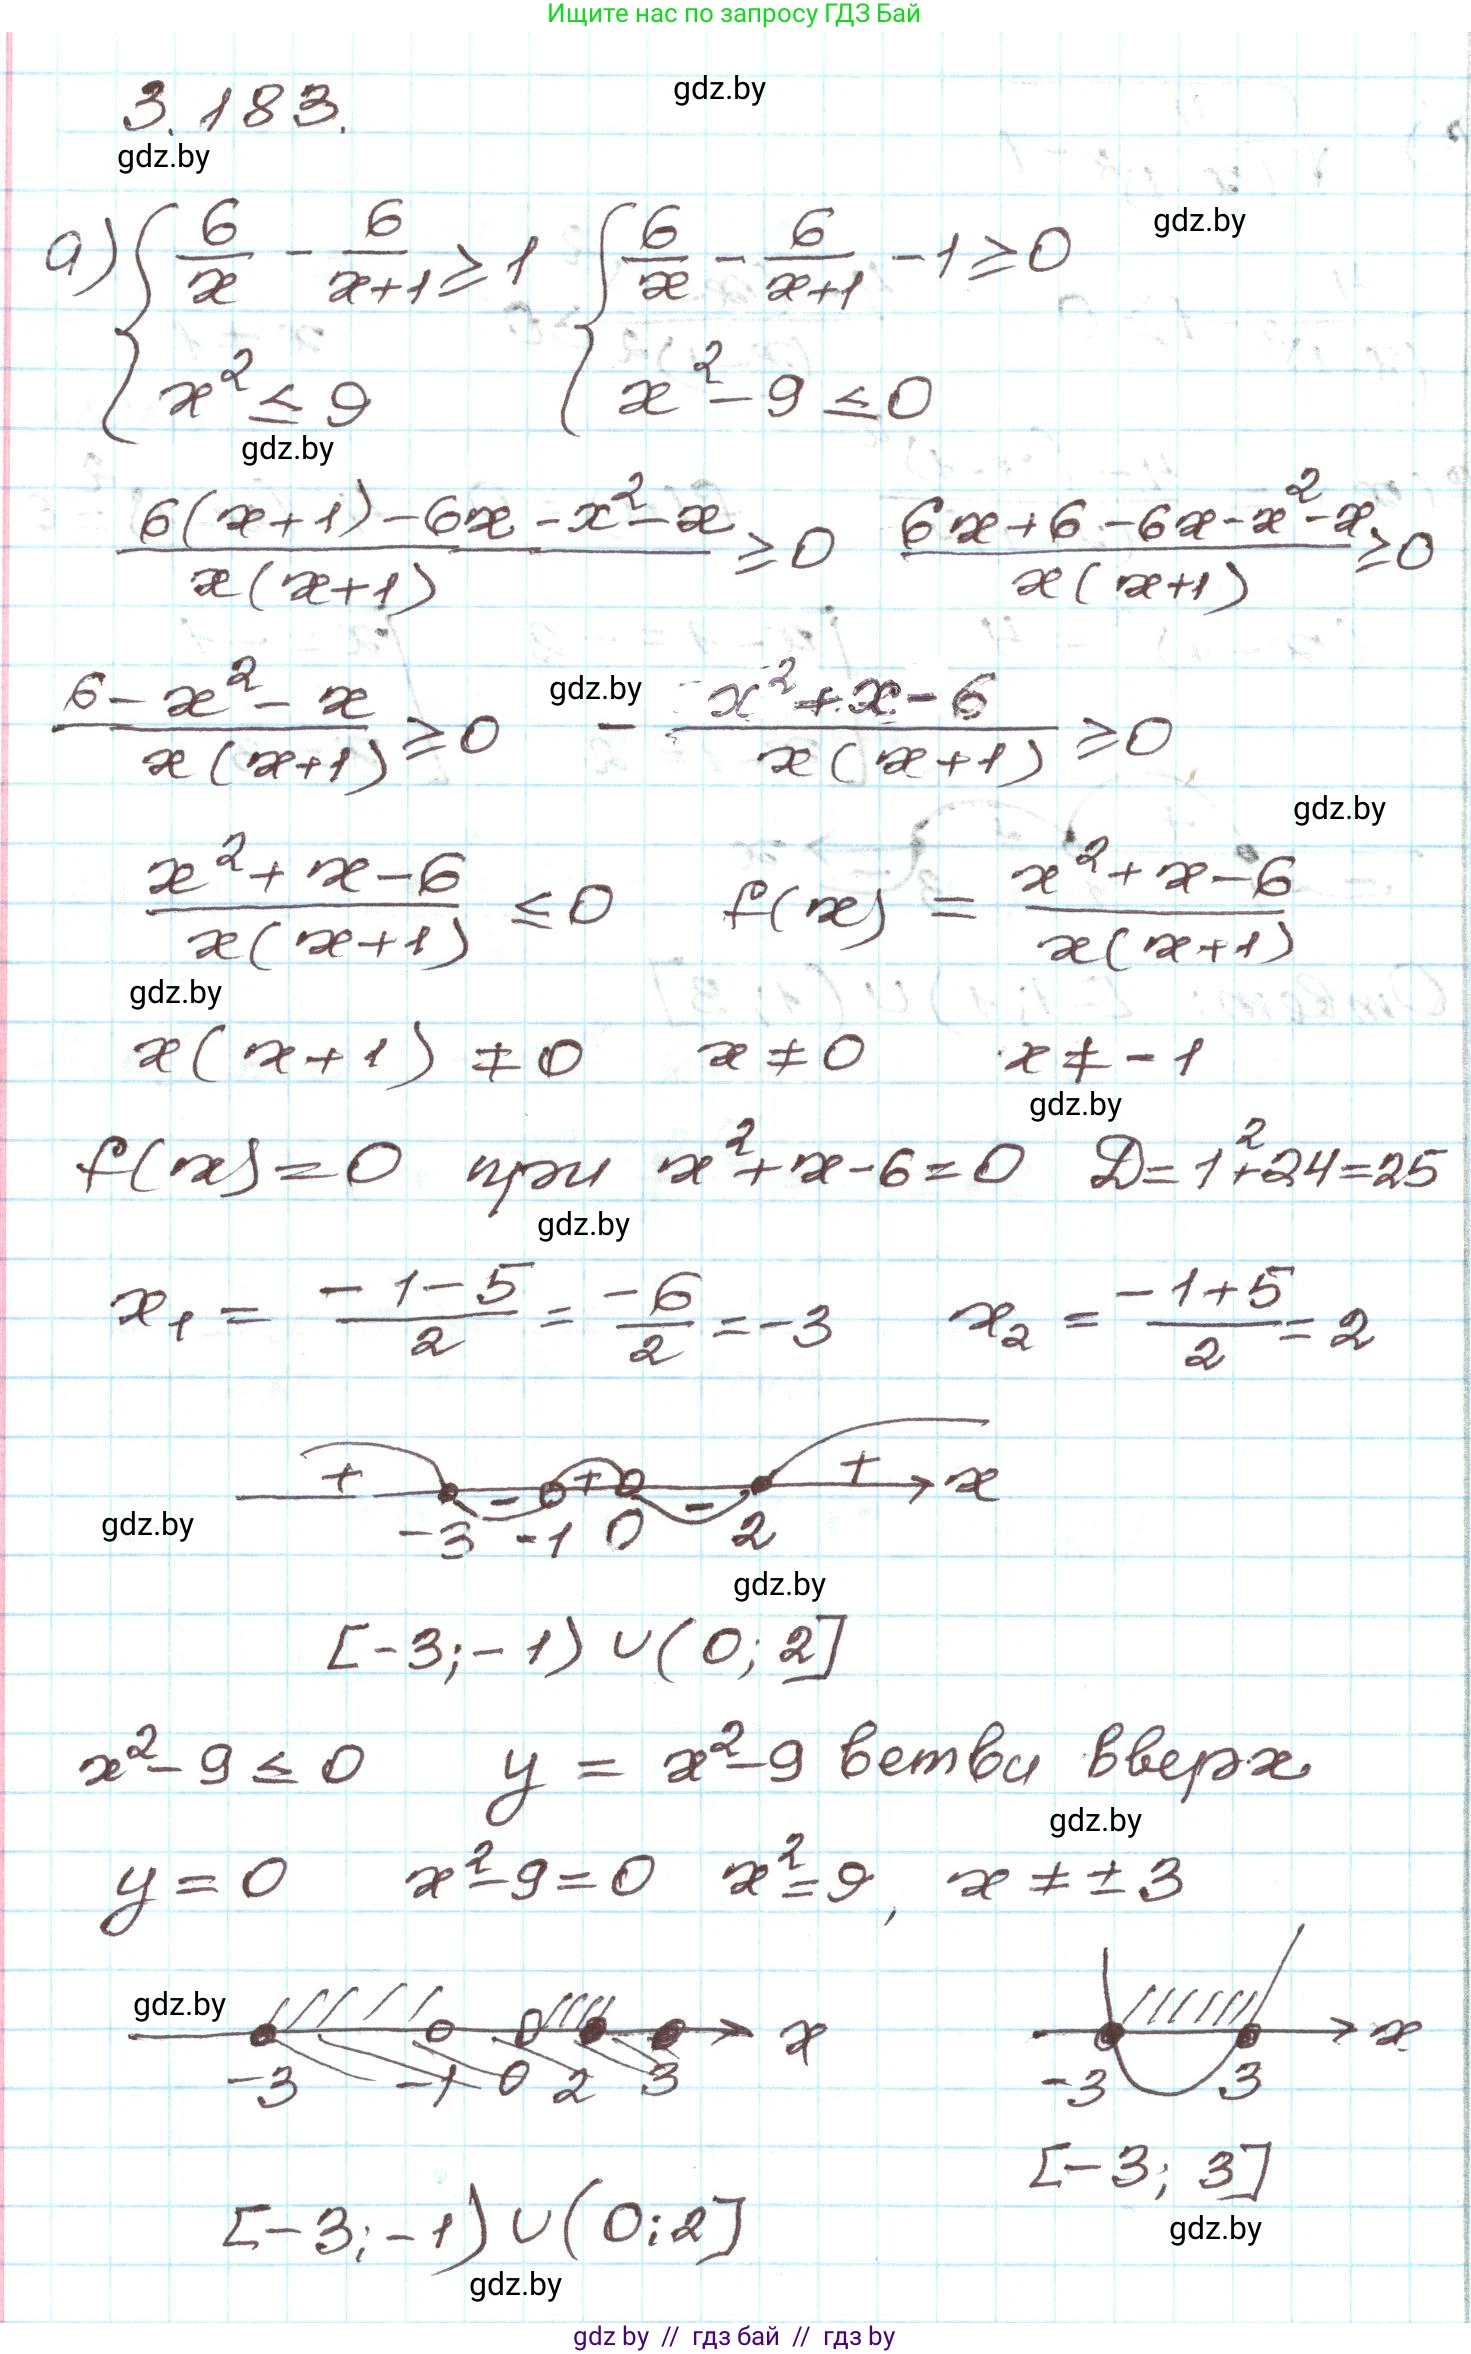 Ищите нас по запросу ГДЗ Бай
gdz.by
3.183.
gdz.by
gdz.by
а) { 6/x - 6/(x+1) ≥ 1 { 6/x - 6/(x+1) - 1 ≥ 0
x² ≤ 9 x² - 9 ≤ 0
gdz.by
(6(x+1) - 6x - x² - x)/(x(x+1)) ≥ 0 (6x + 6 - 6x - x² - x)/(x(x+1)) ≥ 0
(6 - x² - x)/(x(x+1)) ≥ 0 gdz.by - (x² + x - 6)/(x(x+1)) ≥ 0
gdz.by
(x² + x - 6)/(x(x+1)) ≤ 0 f(x) = (x² + x - 6)/(x(x+1))
gdz.by
x(x+1) ≠ 0 x ≠ 0 x ≠ -1
gdz.by
f(x) = 0 при x² + x - 6 = 0 D = 1² + 24 = 25
gdz.by
x₁ = (-1-5)/2 = -6/2 = -3 x₂ = (-1+5)/2 = 2
+ - + - + x
gdz.by -3 -1 0 2
gdz.by
[-3; -1) ∪ (0; 2]
x² - 9 ≤ 0 y = x² - 9 ветви вверх
gdz.by
y = 0 x² - 9 = 0 x² = 9, x ≠ ±3
gdz.by
x x
-3 -1 0 2 3 -3 3
[-3; 3]
[-3; -1) ∪ (0; 2]
gdz.by
gdz.by
gdz by // гдз бай // гдз by